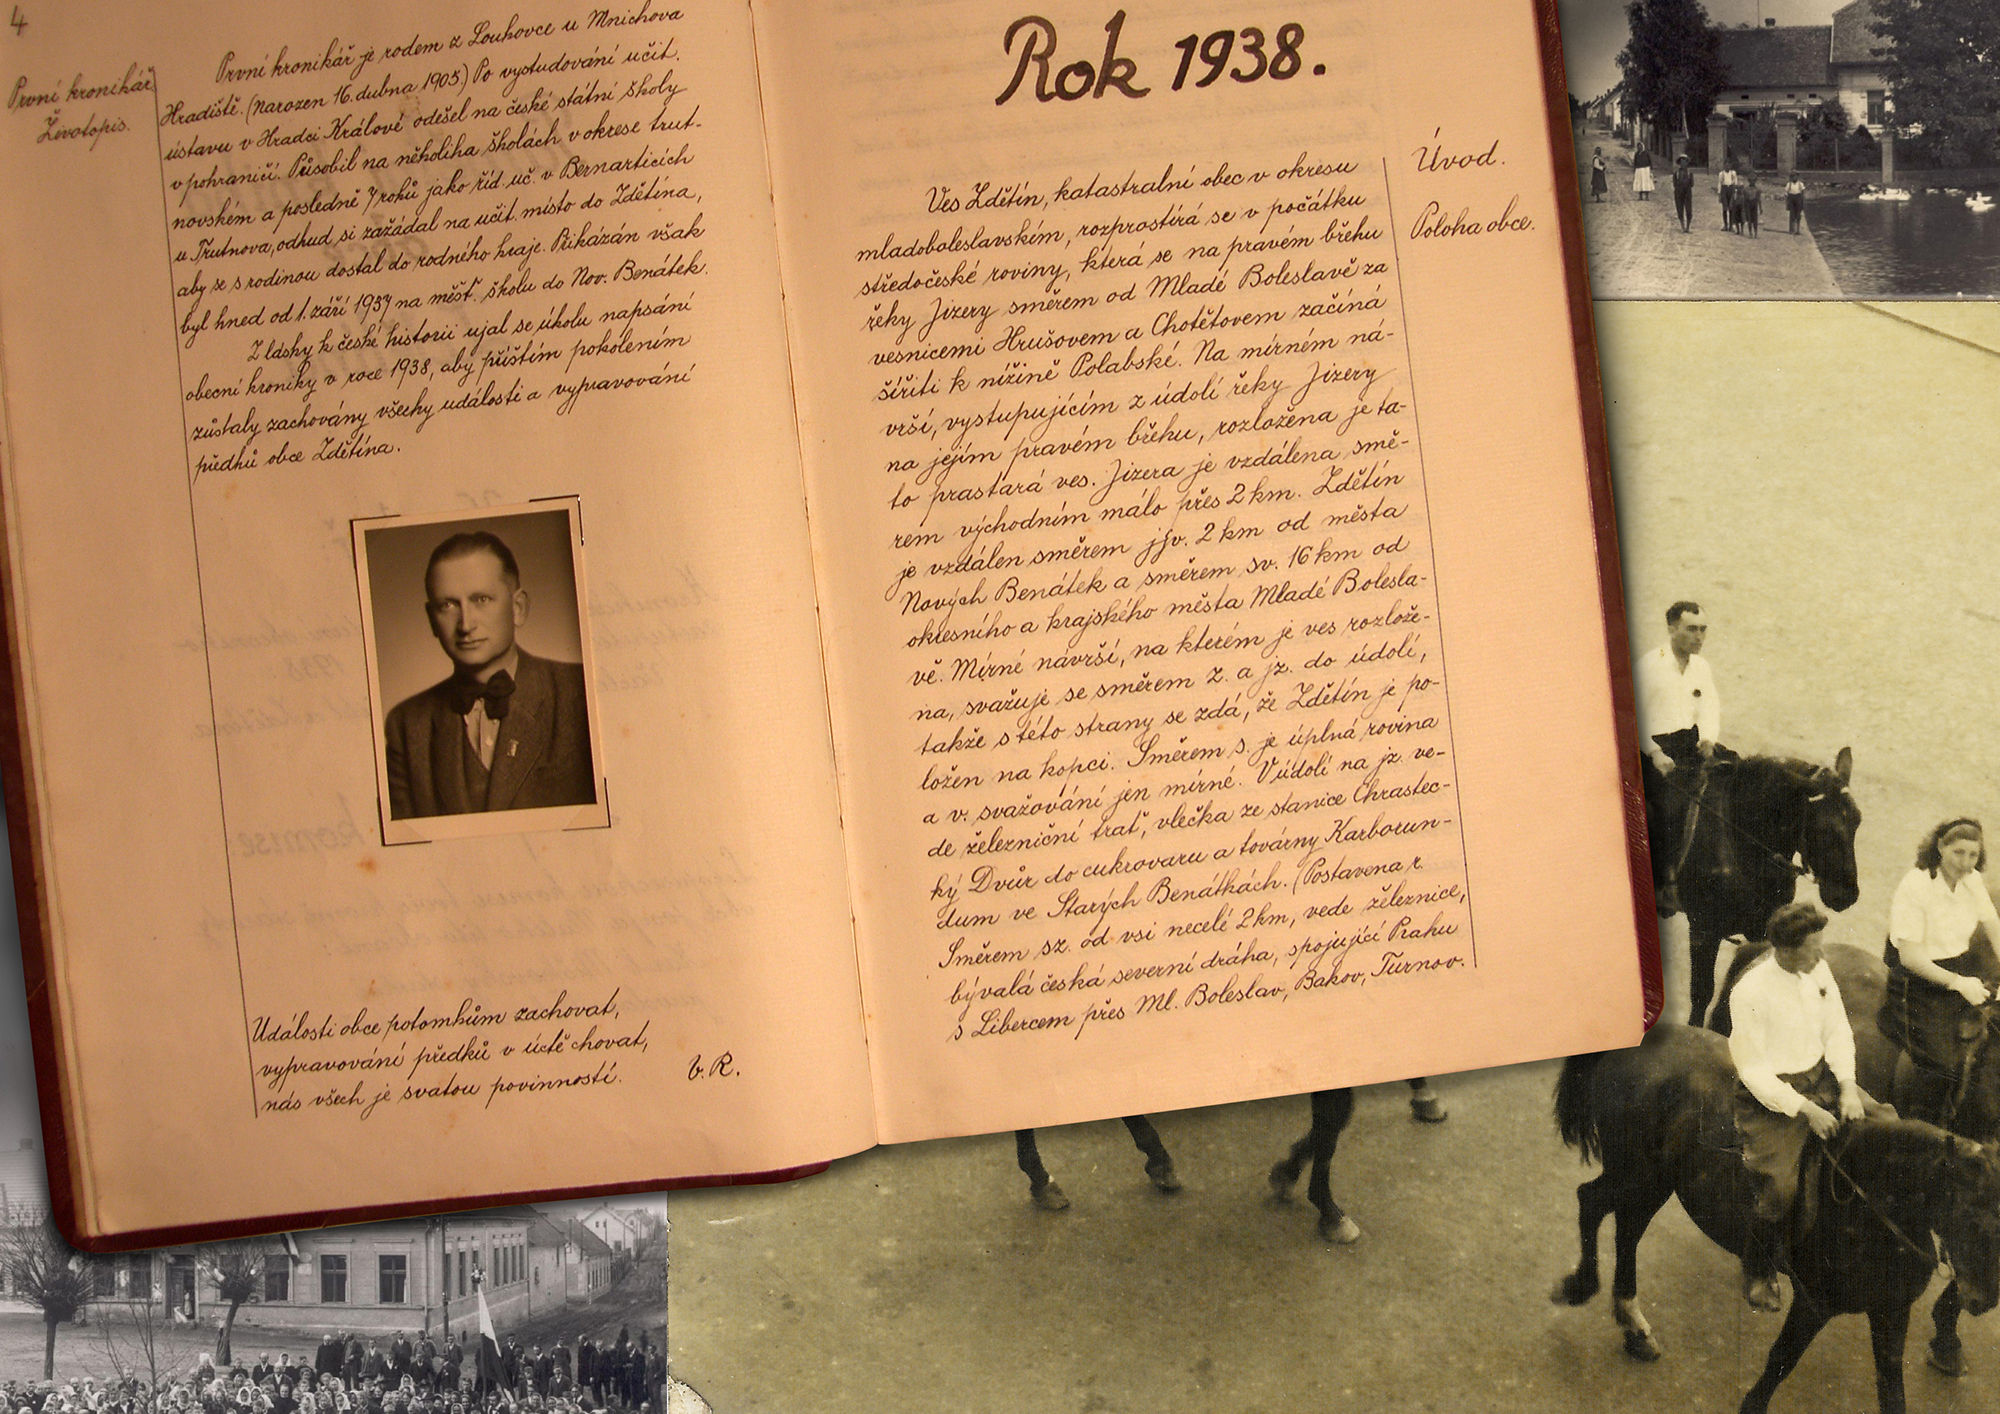 4
První kronikář
Životopis.
První kronikář je rodem z Louhovce u Mnichova
Hradiště. (Narozen 16. dubna 1905) Po vystudování učit.
ústavu v Hradci Králové odešel na české státní školy
v pohraničí. Působil na několika školách v okrese trut-
novském a posledně 7 roků jako říd. uč. v Bernarticích
u Trutnova, odkud si zažádal na učit. místo do Zdětína,
aby se s rodinou dostal do rodného kraje. Přikázán však
byl hned od 1. září 1937 na měšť. školu do Nov. Benátek.
Z lásky k české historii ujal se úkolu napsání
obecní kroniky v roce 1938, aby příštím pokolením
zůstaly zachovány všechy události a vypravování
předků obce Zdětína.
Události obce potomkům zachovat,
vypravování předků v úctě chovat,
nás všech je svatou povinností.
V. R.
Rok 1938.
Úvod.
Poloha obce.
Ves Zdětín, katastralní obec v okresu
mladoboleslavském, rozprostírá se v počátku
středočeské roviny, která se na pravém břehu
řeky Jizery směrem od Mladé Boleslavě za
vesnicemi Hrušovem a Chotětovem začíná
šířiti k nížině Polabské. Na mírném ná-
vrší, vystupujícím z údolí řeky Jizery
na jejím pravém břehu, rozložena je ta-
to prastará ves. Jizera je vzdálena smě-
rem východním málo přes 2 km. Zdětín
je vzdálen směrem jjv. 2 km od města
Nových Benátek a směrem sv. 16 km od
okresního a krajského města Mladé Bolesla-
vě. Mírné návrší, na kterém je ves rozlože-
na, svažuje se směrem z. a jz. do údolí,
takže s této strany se zdá, že Zdětín je po-
ložen na kopci. Směrem s. je úplná rovina
a v. svažování jen mírné. V údolí na jz. ve-
de železniční trať, vlečka ze stanice Chrastec-
ký Dvůr do cukrovaru a továrny Karborun-
dum ve Starých Benátkách. (Postavena r.
Směrem sz. od vsi necelé 2 km, vede železnice,
bývalá česká severní dráha, spojující Prahu
s Libercem přes Ml. Boleslav, Bakov, Turnov.